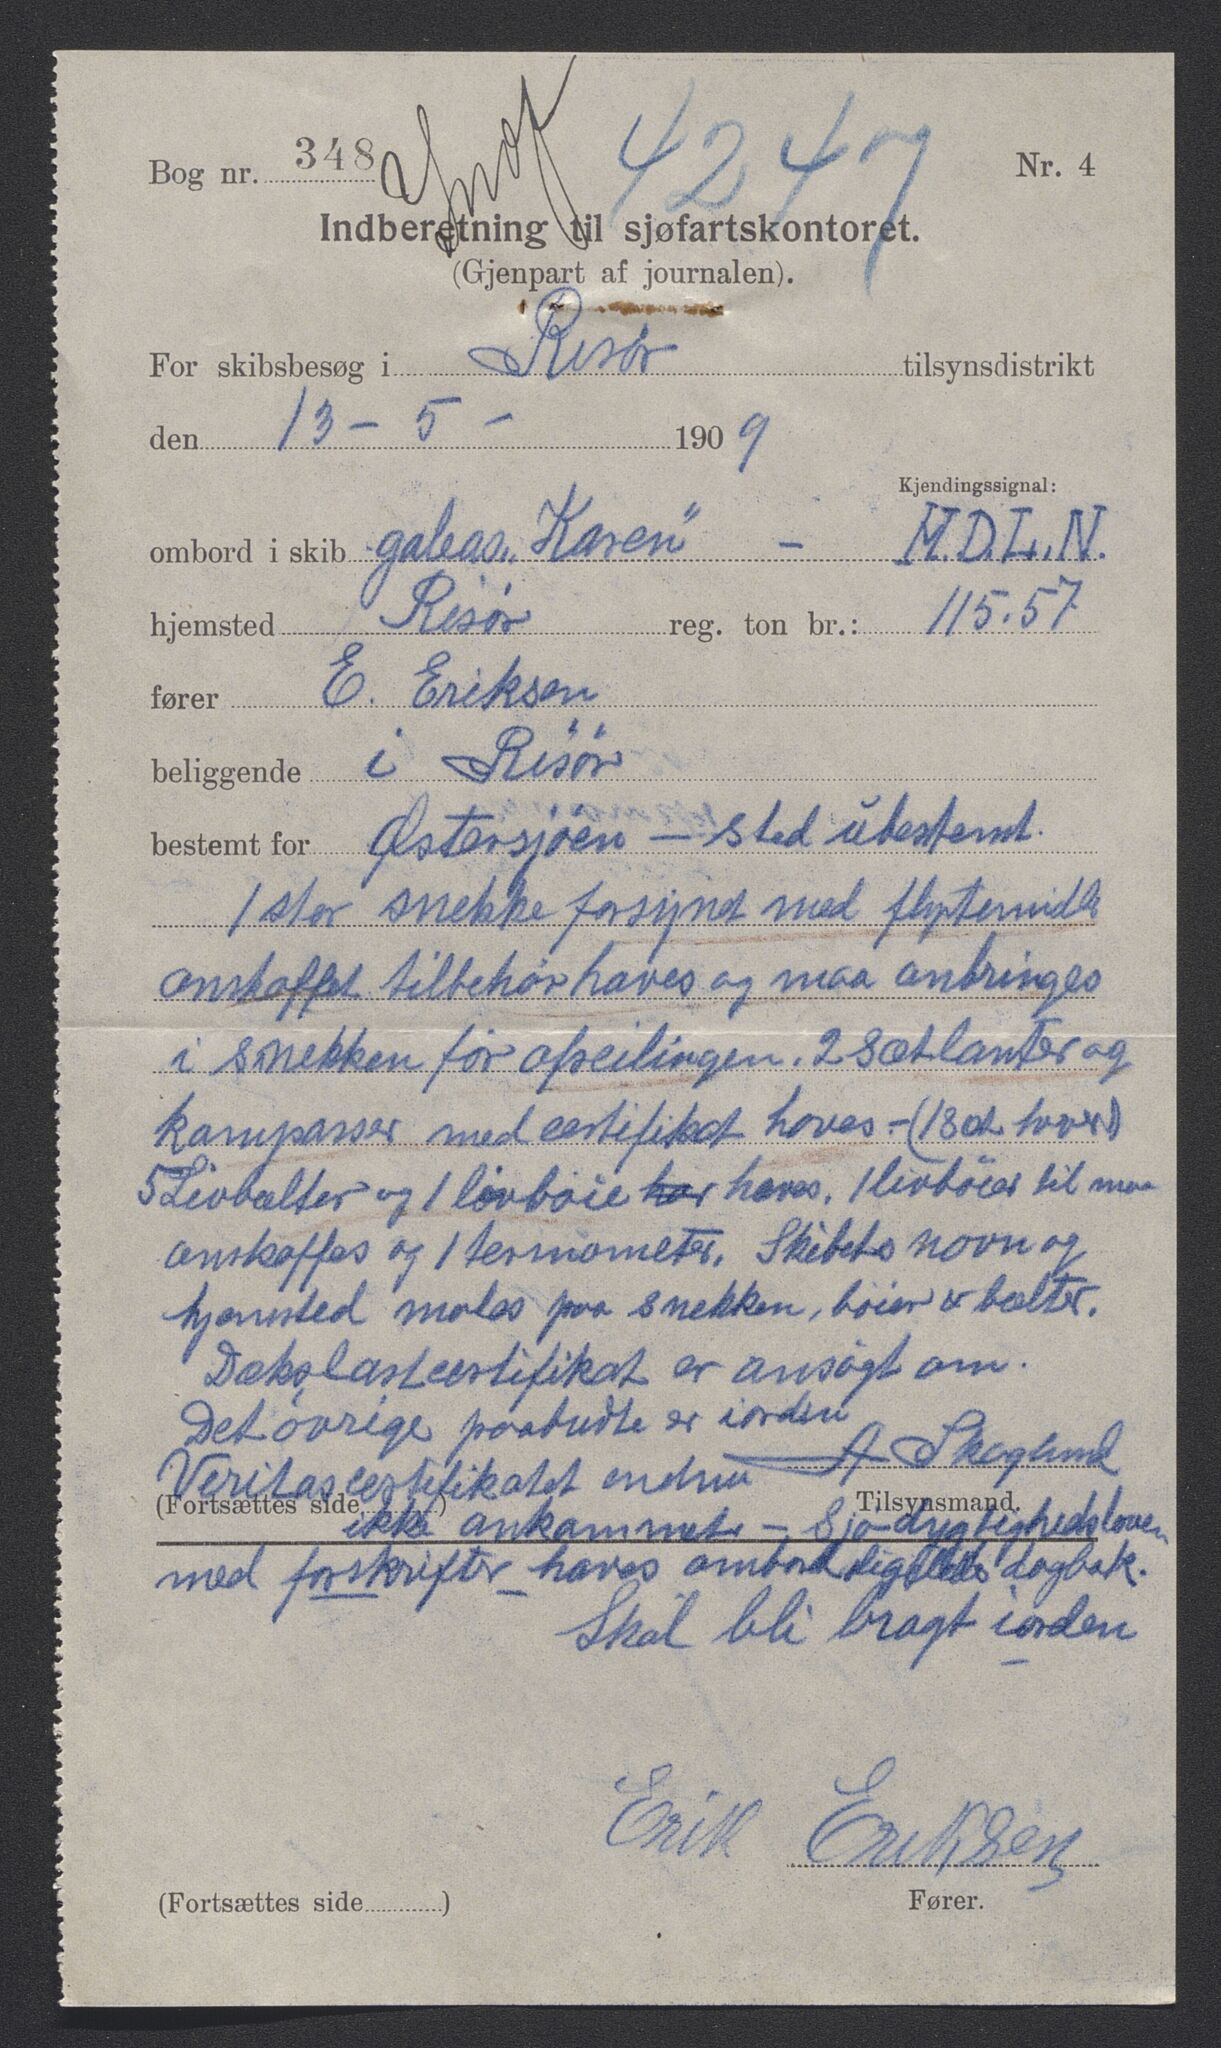 Bog nr. 348
4247
Nr. 4
Indberetning til sjøfartskontoret.
(Gjenpart af journalen).
For skibsbesøg i Risör tilsynsdistrikt
den 13 - 5 - 1909
Kjendingssignal:
ombord i skib galeas „Karen" - M.D.L.N.
hjemsted Risør reg. ton br.: 115.57
fører E. Eriksen
beliggende i Risör
bestemt for Østersjøen - sted ubestemt.
1 stor snekke forsynet med flytemidler
anskaffet tilbehör haves og maa anbringes
i snekken för afseilingen. 2 sæt lanter og
kompasser med certifikat haves - (1 sæt hver)
5 Livbælter og 1 livböie har haves. 1 livböier til maa
anskaffes og 1 termometer. Skibets navn og
hjemsted males paa snekken, böier & bælter.
Dækslastcertifikat er ansögt om.
Det övrige paabudte er iorden
A Skoglund
Veritascertifikatet endnu
(Fortsættes side ) Tilsynsmand.
ikke ankommet - Sjödygtighedsloven
med forskrifter haves ombord ligeledes dagbok.
Skal bli bragt iorden
Erik Eriksen
(Fortsættes side ) Fører.